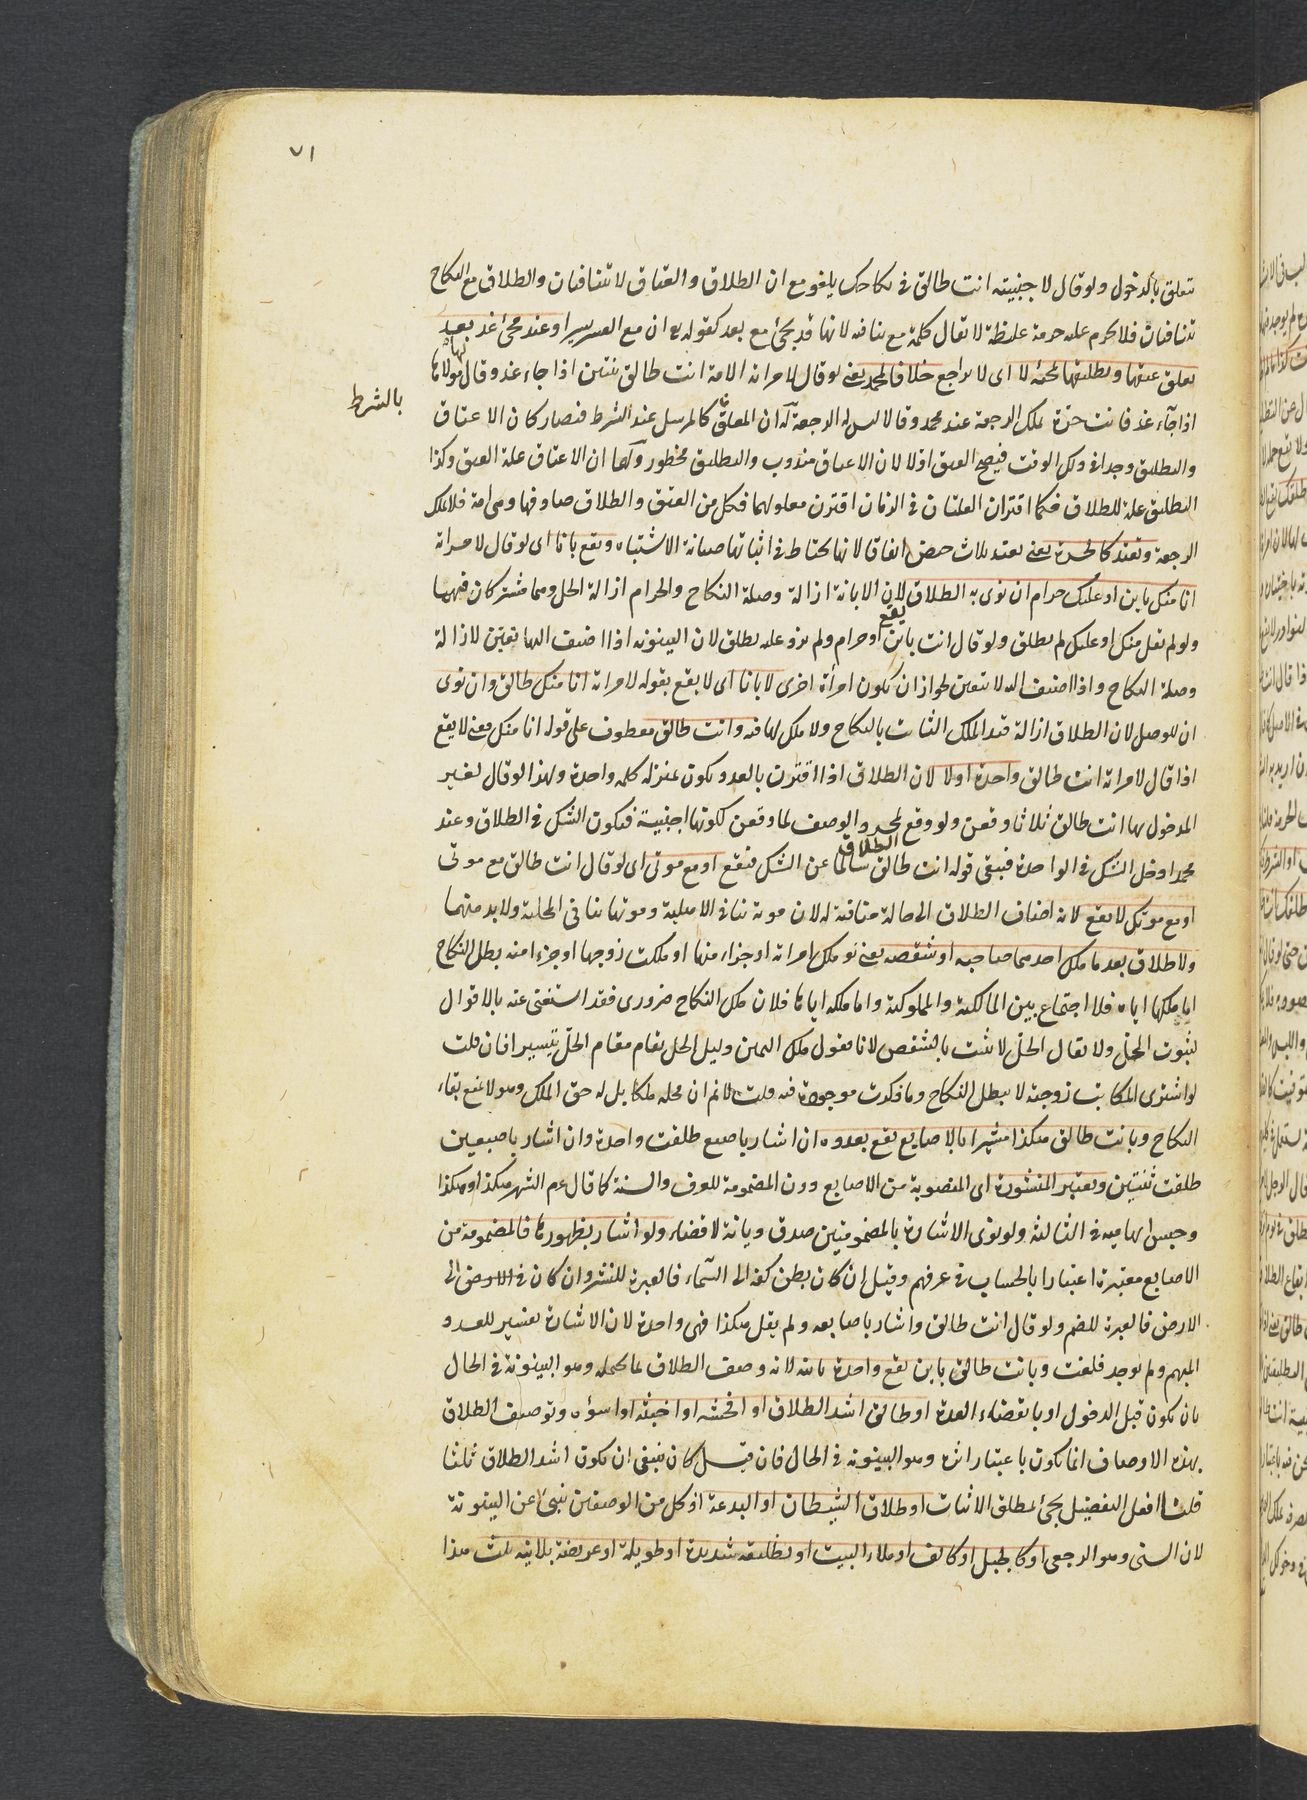 ٧١
تتعلق بالدخول ولو قال لاجنبية انت طالق في نكاحك يلغو مع ان الطلاق والعتاق لا تتنافيان والطلاق مع النكاح
تتنافيان فلا يحرم عليه حرمة غليظة لا تقال كلمة مع تنافيه لانها قد يجئ مع بعد كقوله تع ان مع العسر يسرا وعند مجئ غد بعد
تعلق عتقها وتطليقها بمجئه لا اى لا يراجع خلافا لمحمد يعنى لو قال لامراته الامة انت طالق ثنتين اذا جاء غد وقال لها مولاها
بالشرط
اذا جاء غد فانت حرة يملك الرجعة عند محمد وقالا ليس له الرجعة له ان المعلق كالمرسل عند الشرط فصار كان الاعتاق
والتطليق وجدا فى ذلك الوقت فيصح العتق اولا لان الاعتاق مندوب والتطليق محظور ولهما ان الاعتاق علة العتق وكذا
التطليق علة للطلاق فكما اقتران العلتان فى الزمان اقترن معلولهما فكل من العتق والطلاق صادفها وهى امة فلا يملك
الرجعة وتعتد كالحرة يعنى تعتد بثلاث حيض اتفاقا لانها يحتاط فى اثباتها صيانة الاشتباه ويقع بانا اى لو قال لامراته
انا منك باين او عليك حرام ان نوى به الطلاق لان الابانة ازالة وصلة النكاح والحرام ازالة الحل وهما مشتركان فيهما
ولو لم يقل منك او عليك لم يطلق ولو قال انت باين او حرام ولم يزد عليه يطلق لان البينونة اذا اضيف اليها تعين لازالة
يقع
وصلة النكاح واذا اضيف اليه لا يتعين لجواز ان تكون امرأة اخرى لا بانا اى لا يقع بقوله لامراته انا منك طالق وان نوى
ان للوصل لان الطلاق ازالة قيد الملك الثابت بالنكاح ولا ملك لها فيه وانت طالق معطوف على قوله انا منك يعنى لا يقع
اذا قال لامراته انت طالق واحدة اولا لان الطلاق اذا اقترن بالعدد يكون بمنزلة كلمة واحدة ولهذا لو قال لغير
المدخول بها انت طالق ثلاثا وقعن ولو وقع بمجرد الوصف لما وقعن لكونها اجنبية فيكون الشك فى الطلاق وعند
محمد ادخل الشك فى الواحدة فبقى قوله انت طالق سالما عن الشك فتقع او مع موتى اى لو قال انت طالق مع موتى
الطلاق
او مع موتك لا يقع لانه اضاف الطلاق الى حالة منافية له لان موته ينافى الاهلية وموتها ينافى المحلية ولابد منهما
ولا طلاق بعد ما ملك احدهما صاحبه او شقصه يعنى لو ملك امراته او جزاء منها او ملكت زوجها او جزء منه بطل النكاح
اما ملكها اياه فلا اجتماع بين المالكية والمملوكية واما ملكه اياها فلان ملك النكاح ضرورى فقد استغنى عنه بالاقوال
لثبوت الحل ولا يقال الحل لا يثبت بالشقص لانا نقول ملك اليمين دليل الحل يقام مقام الحل تيسيرا فان قلت
لو اشترى المكاتب زوجته لا يبطل النكاح وما ذكرت موجود فيه قلت لانم ان محله ملكا بل له حق الملك وهو لا يمنع بقاء
النكاح وبانت طالق هكذا مشيرا بالاصابع يقع بعدده ان اشار باصبع طلقت واحدة وان اشار باصبعين
طلقت ثنتين وتعتبر المنشورة اى المنصوبة من الاصابع دون المضمومة للعرف والسنة كما قال عم الشهر هكذا وهكذا
وحبس ابهامه فى الثالثة ولو نوى الاشارة بالمضمومتين صدق ديانة لا قضاء ولو اشار بظهورها فالمضمومة من
الاصابع معتبرة اعتبارا بالحساب فى عرفهم وقيل ان كان بطن كفه الى السماء فالعبرة للنشر وان كان فى الارض الى
الارض فالعبرة للضم ولو قال انت طالق واشار باصابعه ولم يقل هكذا فهى واحدة لان الاشارة تفسير للعدد
المبهم ولم يوجد فلغت وبانت طالق باين تقع واحدة باينة لانه وصف الطلاق بما يحتمله وهو البينونة فى الحال
بان يكون قبل الدخول او بانقضاء العدة او طالق اشد الطلاق او افحشه او اخبثه او اسؤه وتوصيف الطلاق
بهذه الاوصاف انما يكون باعتبار اثره وهو البينونة فى الحال فان قيل كان ينبغى ان يكون اشد الطلاق ثلثا
قلت افعل التفضيل يجئ لمطلق الاثبات او طلاق الشيطان او البدعة اذ كل من الوصفين ينبئ عن البينونة
لان السنى وهو الرجعى او كالجبل او كالف او ملاء البيت او تطليقة شديدة او طويلة او عريضة بلا نية ثلث هذا